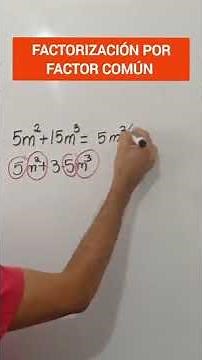 FACTORIZACIÓN POR
FACTOR COMÚN
5m²+15m³= 5m²(
5m²+3·5m³